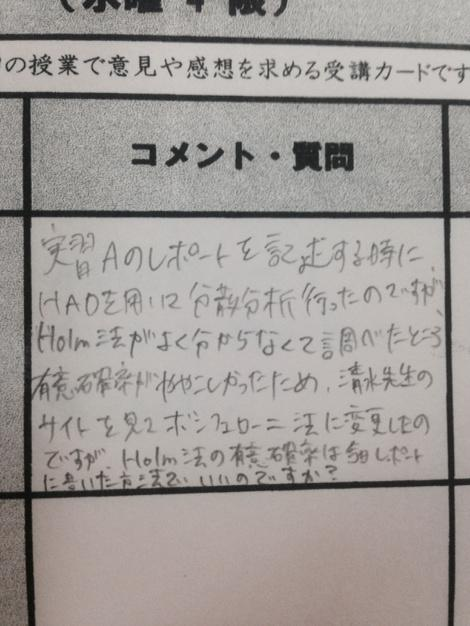 （水曜4限）
の授業で意見や感想を求める受講カードです
コメント・質問
実習Aのレポートを記述する時に、
HADを用いて分散分析行ったのですが、
Holm法がよく分からなくて調べたところ
有意確率がややこしかったため、清水先生の
サイトを見てボンフェローニ法に変更したの
ですが Holm法の有意確率は レポート
に書いた方法でいいのですか？